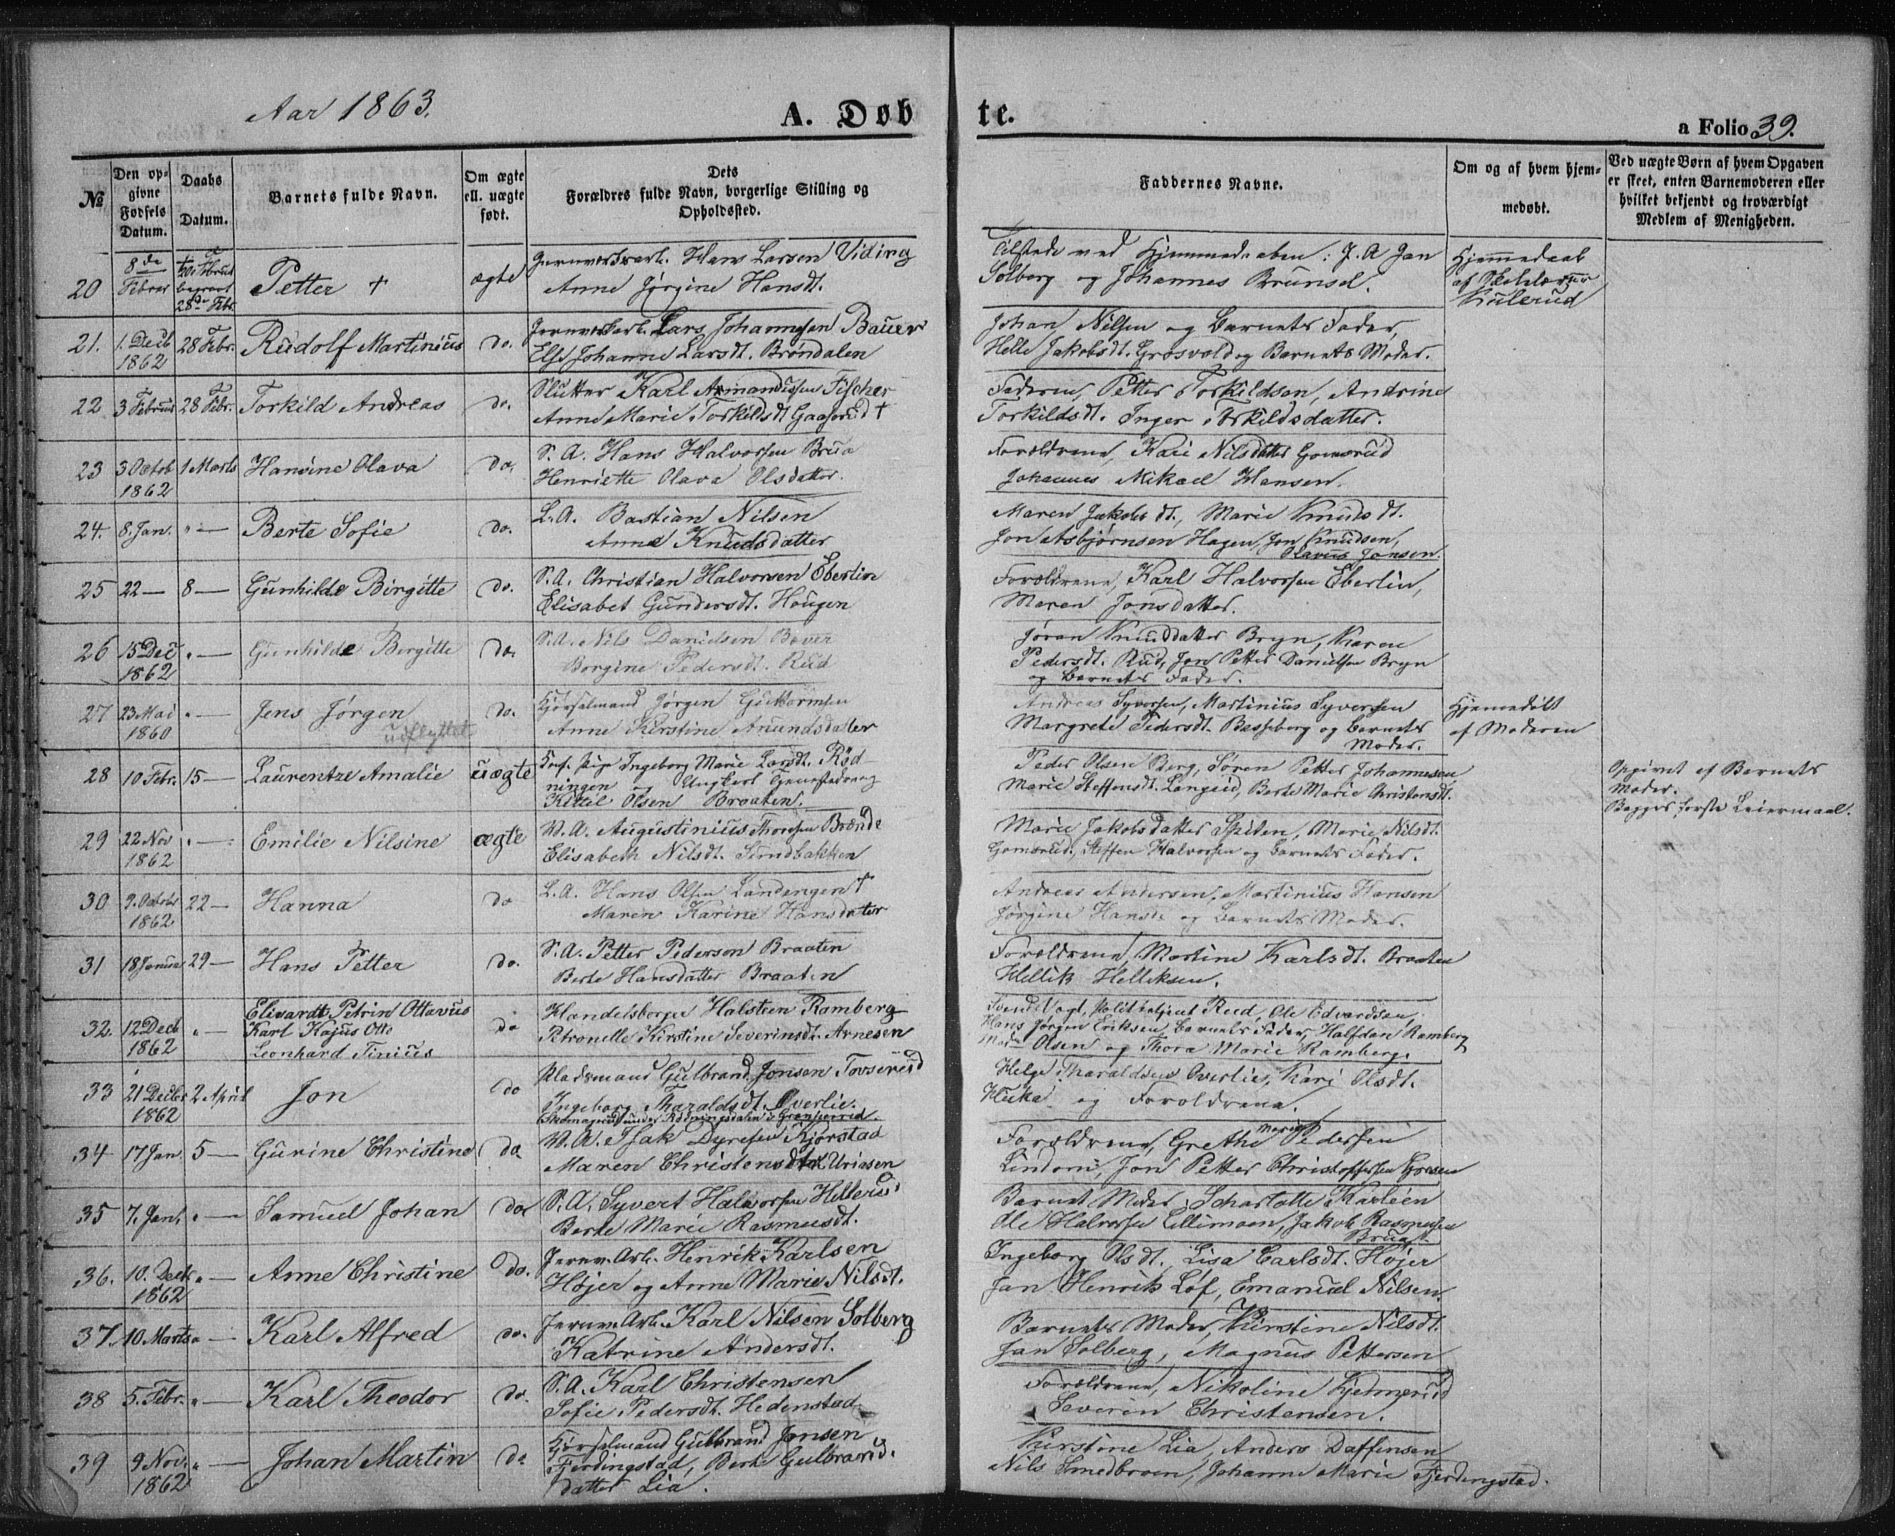 Aar 1863.
A. Døb
te.
a Folio 39.
№
Den opgivne Fødsels Datum.
Daabs Datum.
Barnets fulde Navn.
Om ægte ell. uægte født.
Dets Forældres fulde Navn, borgerlige Stilling og Opholdssted.
Faddernes Navne.
Om og af hvem hjemmedøbt.
Ved uægte Børn af hvem Opgaven er skeet, enten Barnemoderen eller hvilket bekjendt og troværdigt Medlem af Menigheden.
20 8de Febrar begravet 28de Febr. Petter + ægte Hans Larsen Viding
Anne Jørgine Hansdt.
Tilstede ved Hjemmedaaben: J. A. Jan
Solberg og Johannes Brunsel.
Hjemmedaab
af
21. 1. Decb 1862 28 Febr. Rudolf Martinius do. Lars Johannesen Bauer
Else Johanne Larsdt. Brøndalen
Johan Nilsen og Barnets Fader,
Helle Jakobsdt. Grosvold og Barnets Moder.
22 3 Februar 28 Febr. Torkild Andreas do. Karl Armandusen Fischer
Anne Marie Torkildsdt. Gaaserud +
Faderen, Petter Torkildsen, Andrine
Torkildsdt. Inger Torkildsdatter.
23 3 Octob 1862 1 Marts Hansine Olava do. S. A. Hans Halvorsen Brua
Henriette Olava Olsdatter.
Forældrene, Kari Nilsdatter Gomsrud
Johannes Mikael Hansen.
24. 8. Jan. " — Berte Sofie do. L. A. Bastian Nilsen
Anne Knudsdatter
Maren Jakobsdt., Marie Knudsdt.
Jon Asbjørnsen Hagen, Jon Knudsen,
Olavus Jonsen.
25 22 — 8 — Gunhilde Birgitte do. S. A. Christian Halvorsen Eberlin
Elisabet Gundersdt. Hougen
Forældrene, Karl Halvorsen Eberlin,
Maren Jonsdatter.
26 15 Dec 1862 " — Gunhilde Birgitte do. S. A. Nils Danielsen Bever
Borgine Pedersdt. Rud
Jøran Knudsdatter Bryn, Karen
Pedersdt. Rud, Jon Petter Danielsen Bryn
og Barnets Fader.
27 23 Mai 1860 " — Jens Jørgen udflyttet do. Jørgen Guttormsen
Anne Kirstine Amundsdatter
Andreas Syversen, Martinius Syversen
Margrete Pedersdt. Basseberg og Barnets
Moder.
Hjemmedøbt
af Moderen
28 10 Febr. 15 — Laurentze Amalie uægte Pige Ingeborg Marie Larsdt. Rød-
ningen Ungkarl
Kittil Olsen Braaten.
Peder Olsen Berg, Søren Petter Johannesen
Marie Steffensdt. Langrud, Berte Marie Christensdt.
Opgivet af Barnets
Moder.
Begges første Leiermaal.
29 22 Nov 1862 " — Emilie Nilsine ægte Augustinius Thoresen Brænde
Elisabeth Nilsdt. Sundbakken
Marie Jakobsdatter Spiten, Marie Nilsdt.
Gomsrud, Steffen Halvorsen og Barnets Fader.
30 9. Octobr 1862 22 — Hanna do L. A. Hans Olsen Landengen +
Maren Karine Hansdatter
Andreas Andersen, Martinius Hansen
Jørgine Hansdt og Barnets Moder.
31 18 Januar 29 — Hans Petter do. S. A. Petter Pederson Braaten
Berte Hansdatter Braaten
Forældrene, Martine Karlsdt. Braaten
Hellik Helliksen.
32. 12 Decb 1862 " — Elivardt Petrin Ottavus
Karl Kajus Otto
Leonhard Tinius
do Handelsborger Halstein Ramberg
Petronelle Kirstine Severinsdt. Arnesen
Svend Vogt, Politibetjent Reed, Ole Edvardsen,
Hans Jørgen Eriksen, Barnets Fader, Halfdan Ramberg
Olsen og Thora Marie Ramberg.
33 21 Decbr 1862 2 April Jon do Pladsmand Gulbrand Jonsen Tovserud
Ingeborg Tharaldsdt. Overlie.
Helge Tharaldsen Overlie, Kari Olsdt.
og Forældrene.
34 17 Jan. 5 — Gurine Christine do Isak Dyresen Kjørstad
Maren Christensdtr. Uriasen
Forældrene, Grethe Marie Pedersen
Lindom, Jon Petter Christoffersen
35 7. Jan. " — Samuel Johan do S. A. Syvert Halvorsen Hellerud
Berte Marie Rasmusdt.
Barnets Moder, Scharlotte Karleen
Ole Halvorsen Lillimoen, Jakob Rasmusen
Brua.
36. 10. Decb 1862 " — Anne Christine do. Jernv. Arb. Henrik Karlsen
Højer og Anne Marie Nilsdt.
Ingeborg Olsdt. Lisa Carlsdt. Højer
Jan Henrik Løf, Emanuel Nilsen.
37. 10 Marts " — Karl Alfred do. Jernv. Arb. Karl Nilsen Solberg
Katrine Andersdt.
Barnets Moder, Kirstine Nilsdt.
Jan Solberg, Magnus Pettersen
38 5. Febr. " — Karl Theodor do. S. A. Karl Christensen
Sofie Pedersdt. Hedenstad
Forældrene, Nikoline Kjemperud
Severen Christensen.
39 9 Nov. 1862 " — Johan Martin do Gulbrand Jonsen
Fjerdingstad, Berte Gulbrands-
datter Lia.
Kirstine Lia, Anders Daffensen
Nils Smedbroen, Johanne Marie Fjerdingstad.